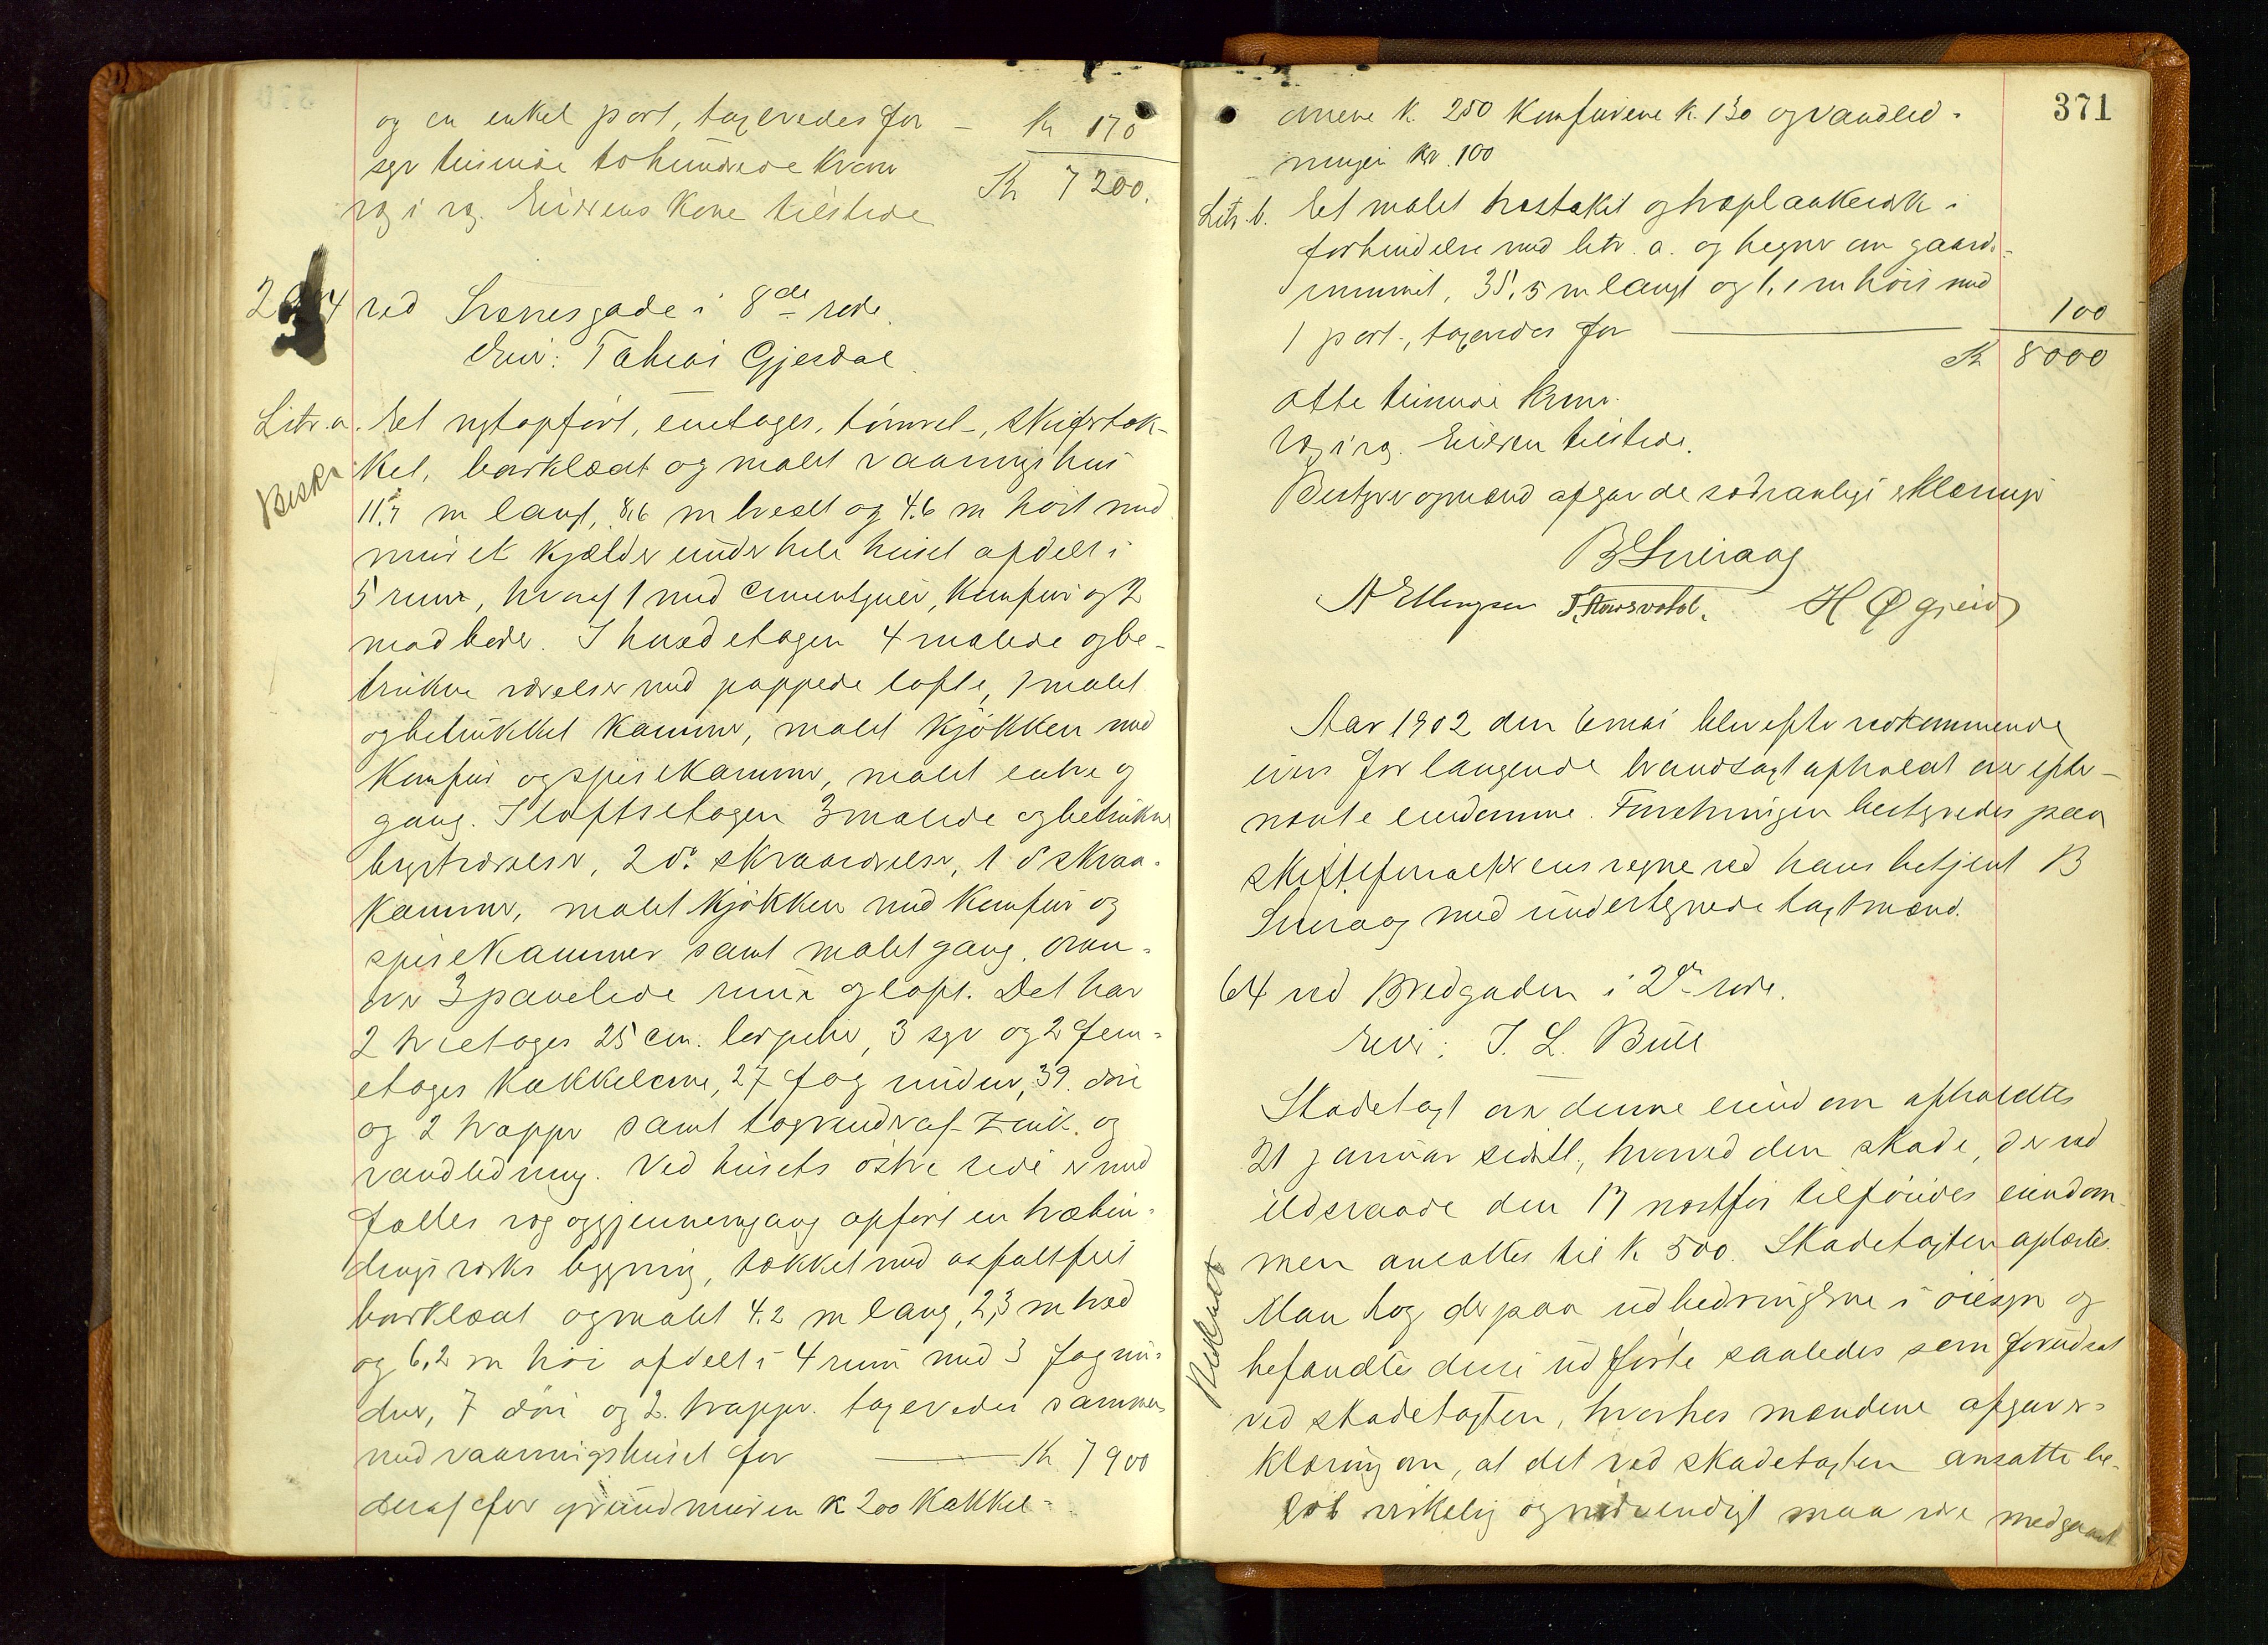 og en enkel port, taxeredes for — Kr 170
syv tusinde tohundrede Kroner Kr 7200.
og i rg. Eierens Kone tilstede
234 ved Svenesgade i 8de rode.
Eier: Tobias Gjerdal
Litr. a. Et nytopført, enetages, tømret-, skifertæk-
Beskr
ket, bordklædt og malet vaaningshus
11.7 m langt, 8,6 m bredt og 4.6 m høit med
muret kjælder under hele huset afdelt i
5 rum, hvoraf 1 med cementgulv, komfur og 2
madboder. I hovedetagen 4 malede og be-
trukne værelser med pappede lofte, 1 malet
og betrukket kammer, malet kjøkken med
komfur og spisekammer, malet entre og
gang. I loftsetagen 3 malede og betrukne
kvistværelser, 2 do skraaværelser, 1 do skraa-
kammer, malet kjøkken med komfur og
spisekammer samt malet gang. oven-
over 3 panelede rum og loft. Det har
2 treetages 25 cm. lerpiber, 3 syv og 2 fem-
etages kakkelovne, 27 fag vinduer, 39 døre
og 2 trapper samt tagrender af zink og
vandledning. Ved husets østre side er med
fælles væg og gjennemgang opført en træbin-
dingsverks bygning, tækket med asfaltfilt
bordklædt og malet 4.2 m lang, 2,3 m bred
og 6.2 m høi afdelt i 4 rum med 3 fag vin-
duer, 7 døre og 2 trapper. taxeredes sammen
med vaaningshuset for — Kr 7900
deraf for grundmuren k 200 Kakkel-
371
ovnene k. 250 Komfurene k. 130 og vandled-
ningen kr. 100
Litr. b. Et malet træstakit og træplankeverk i
forbindelse med litr. a. og hegner om gaards-
rummet, 35,5 m langt og 1,1 m høit med
1 port, taxeredes for — 100
Kr 8000
otte tusinde Kroner
og i rg. Eieren tilstede.
Bestyrer og mænd afgav de sedvanlige erklæringer
B Sueraag
A Ellingsen T. Aarsvold. H Øgreid
Aar 1902 den 6 mai blev efter vedkommende
eiers forlangende brandtaxt afholdt over efter-
nævnte eiendomme. Forretningen bestyredes paa
skifteforvalterens vegne ved hans betjent B
Sueraag med undertegnede taxtmænd.
64 ved Bredgaden i 2den rode.
Eier: I. L. Bull
Skadetaxt over denne eiendom afholdtes
21 januar sidstl., hvorved den skade, der ved
ildsvaade den 17 næstfør tilføiedes eiendom-
men ansattes til k 500. Skadetaxten oplæstes.
Man tog derpaa udbedringerne i øiesyn og
Beskadt
befandtes disse udførte saaledes som forudsat
ved skadetaxten, hvorhos mændene afgav er-
klæring om, at det ved skadetaxten ansatte be-
løb virkelig og nødvendigt maa være medgaaet